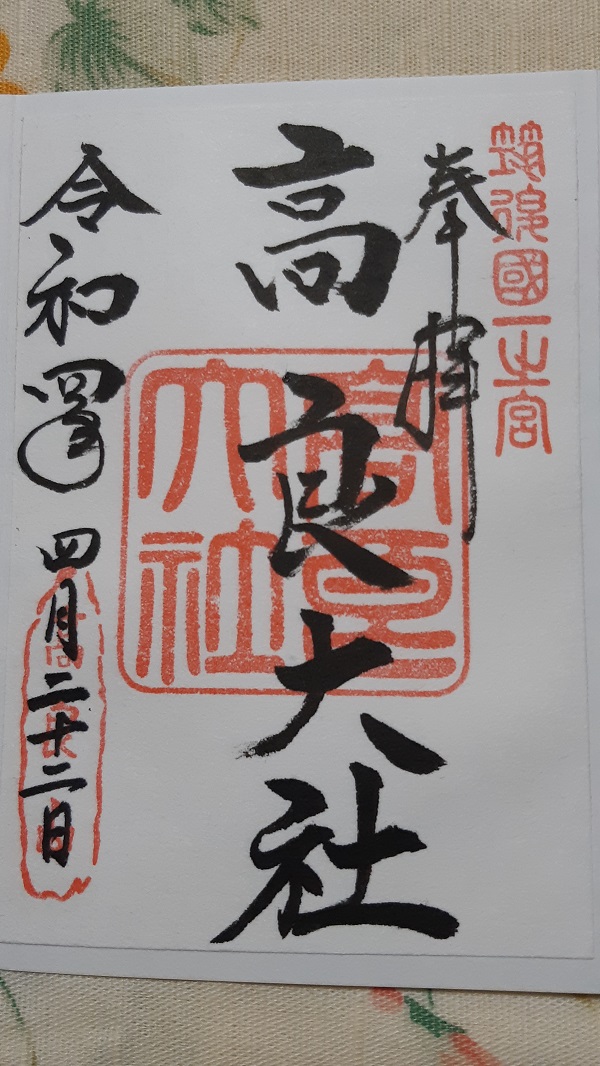 筑後國一之宮
奉拝
高良大社
高良大社
令和四年四月二十二日